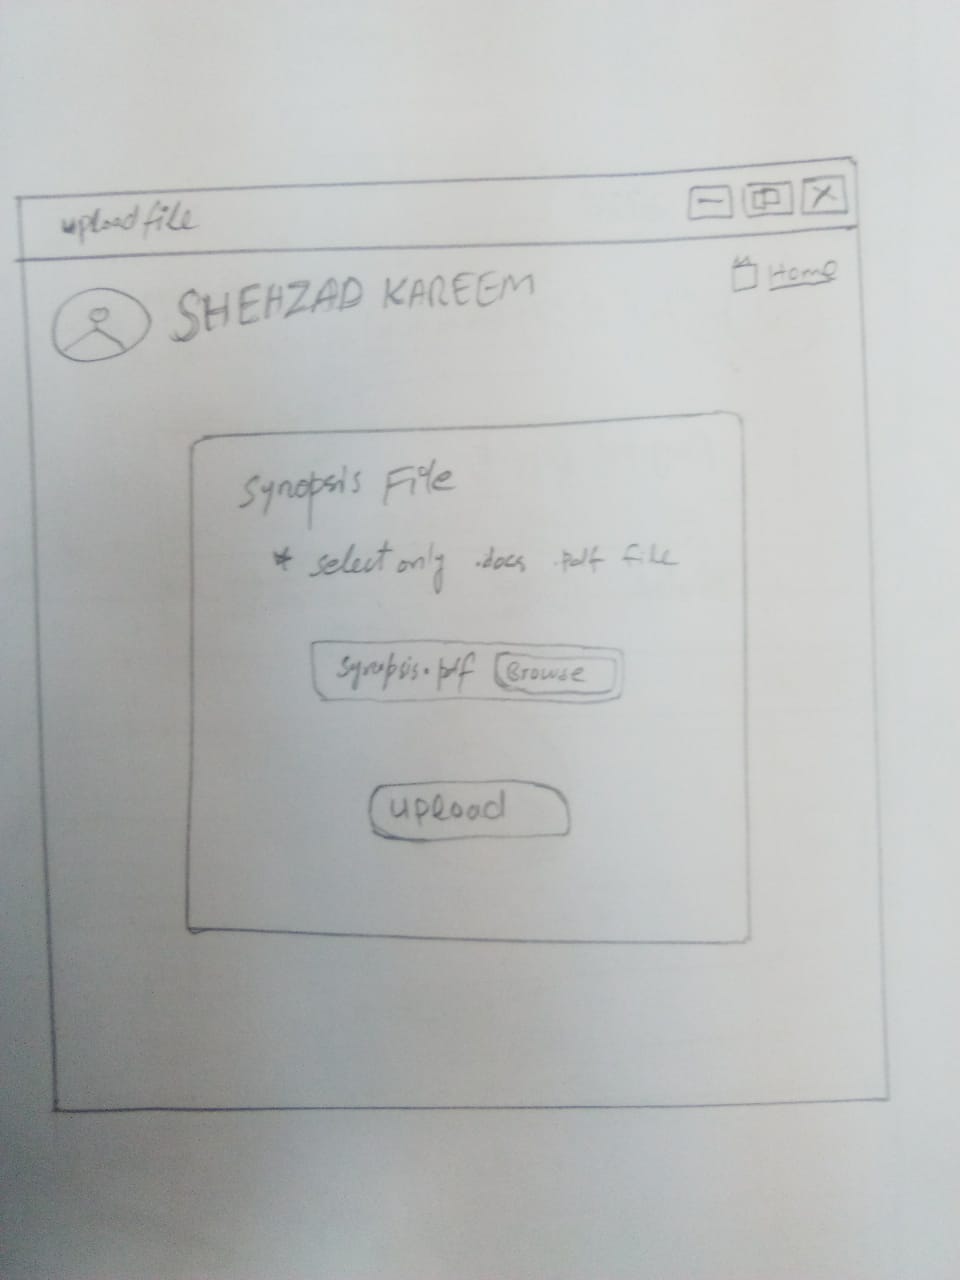 upload file
SHEHZAD KAREEM
Home
Synopsis File
* select only .docs .pdf file
Synopsis.pdf Browse
upload